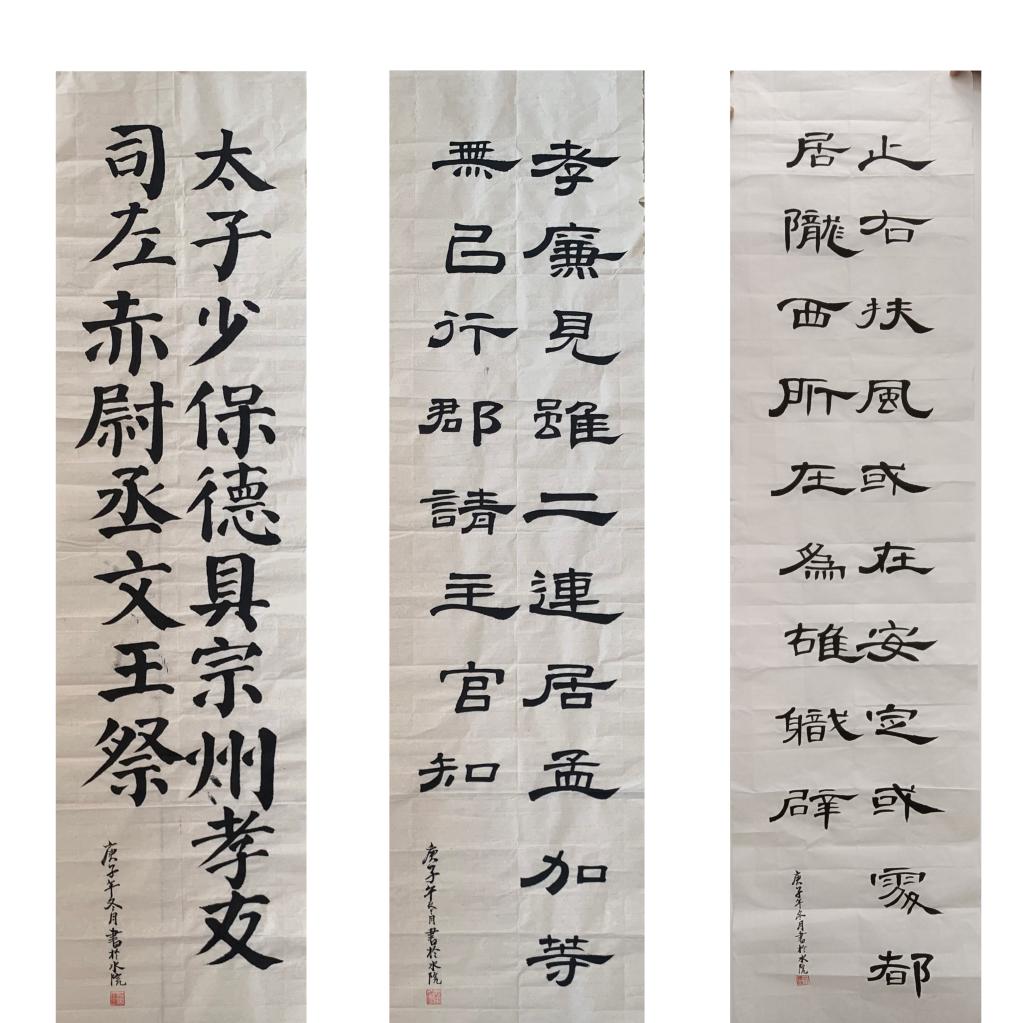 太子少保德具宗州孝友
司左赤尉丞文王祭
庚子年冬月書於水院
孝廉見雖二連居孟加等
無已行郡請主官知
庚子年冬月書於水院
止右扶風或在安定或處都
居隴西所在為雄職辟
庚子年冬月書於水院